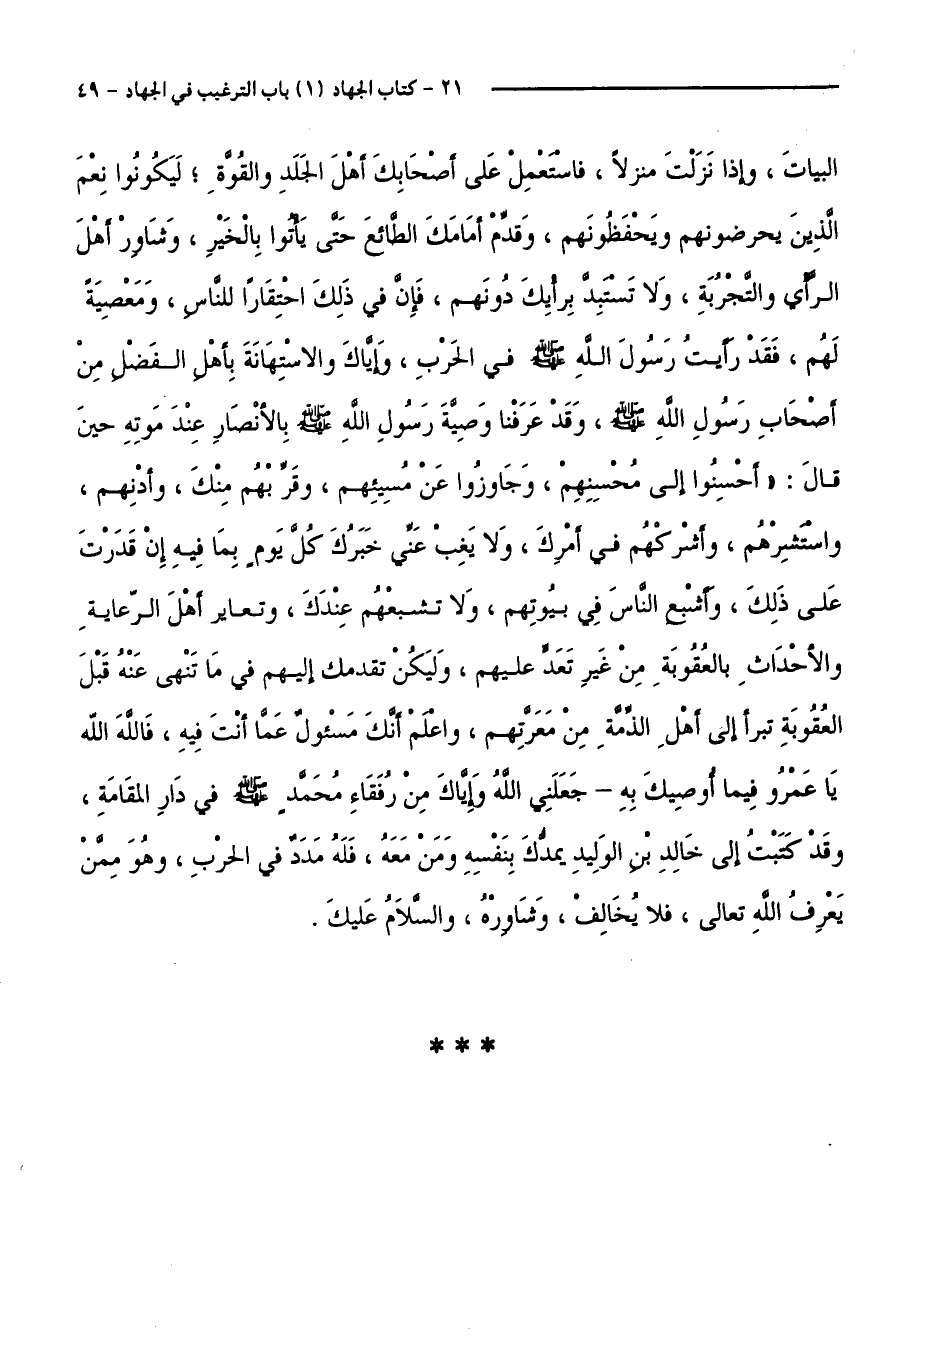 ٢١ - كتاب الجهاد (١) باب الترغيب في الجهاد - ٤٩
البياتَ ، وإذا نَزَلْتَ منزلاً ، فاستَعْمِلْ عَلى أصْحَابِكَ أهْلَ الجَلَدِ والقُوَّةِ ؛ لَيَكُونُوا نِعْمَ
الَّذِينَ يحرضونهم ويَحْفَظُونَهم ، وَقَدِّمْ أمَامَكَ الطَّائعَ حَتَّى يَأْتوا بِالْخَيْرِ ، وشَاوِرْ أهْلَ
الرَّأي والتَّجْرُبَةِ ، وَلَا تَسْتَبِدَّ بِرأيِكَ دُونَهم ، فَإنَّ في ذَلِكَ احْتِقَارًا للنَّاسِ ، وَمَعْصِيَةً
لَهُم ، فَقَدْ رَأيتُ رَسُولَ اللَّهِ ﷺ في الحَرْبِ ، وَإيَّاكَ والاسْتِهَانَةَ بِأهْلِ الفَضْلِ مِنْ
أصْحَابِ رَسُولِ اللَّهِ ﷺ ، وَقَدْ عَرَفْنا وَصِيَّةَ رَسُولِ اللَّهِ ﷺ بِالأنْصَارِ عِنْدَ مَوتِهِ حينَ
قالَ : « أحْسِنُوا إلى مُحْسِنِهِمْ ، وَجَاوِزُوا عَنْ مُسِيئِهِم ، وقَرِّبْهُم مِنْكَ ، وأدْنِهم ،
واسْتَشِرْهُم ، وأشْرِكْهُم في أمْرِكَ ، ولَا يَغِبْ عَنِّي خَبَرُكَ كُلَّ يَومٍ بِمَا فِيهِ إنْ قَدَرْتَ
عَلى ذَلِكَ ، وَأشْبِعِ النَّاسَ فِي بيُوتِهم ، وَلَا تشبعْهُم عِنْدَكَ ، وتعاير أهْلَ الرّعايةِ
والأحْدَاثِ بالعُقُوبَةِ مِنْ غَيرِ تَعَدٍّ عليهم ، وَلَيَكُنْ تقدمك إليهم في مَا تَنْهى عَنْهُ قَبْلَ
العُقُوبَةِ تبرأ إلى أهْلِ الذِّمَّةِ مِنْ مَعَرَّتِهم ، واعْلَمْ أنَّكَ مَسْئولٌ عَمَّا أنْتَ فِيهِ ، فَاللَّهَ اللّه
يَا عَمْرُو فِيما أُوصِيكَ بِهِ – جَعَلَنِي اللَّهُ وَإيَّاكَ مِنْ رُفَقَاءِ مُحَمَّدٍ ﷺ في دَارِ المقَامَةِ ،
وقَدْ كَتَبْتُ إلى خَالِدِ بْنِ الوَلِيدِ يمدُّكَ بِنَفْسِهِ وَمَنْ مَعَهُ ، فَلَهُ مَدَدٌ في الحَرْبِ ، وهُوَ مِمَّنْ
يَعْرِفُ اللَّهِ تعالى ، فلا يُخَالِفْ ، وَشَاوِرْهُ ، والسَّلَامُ عَليكَ .
* * *